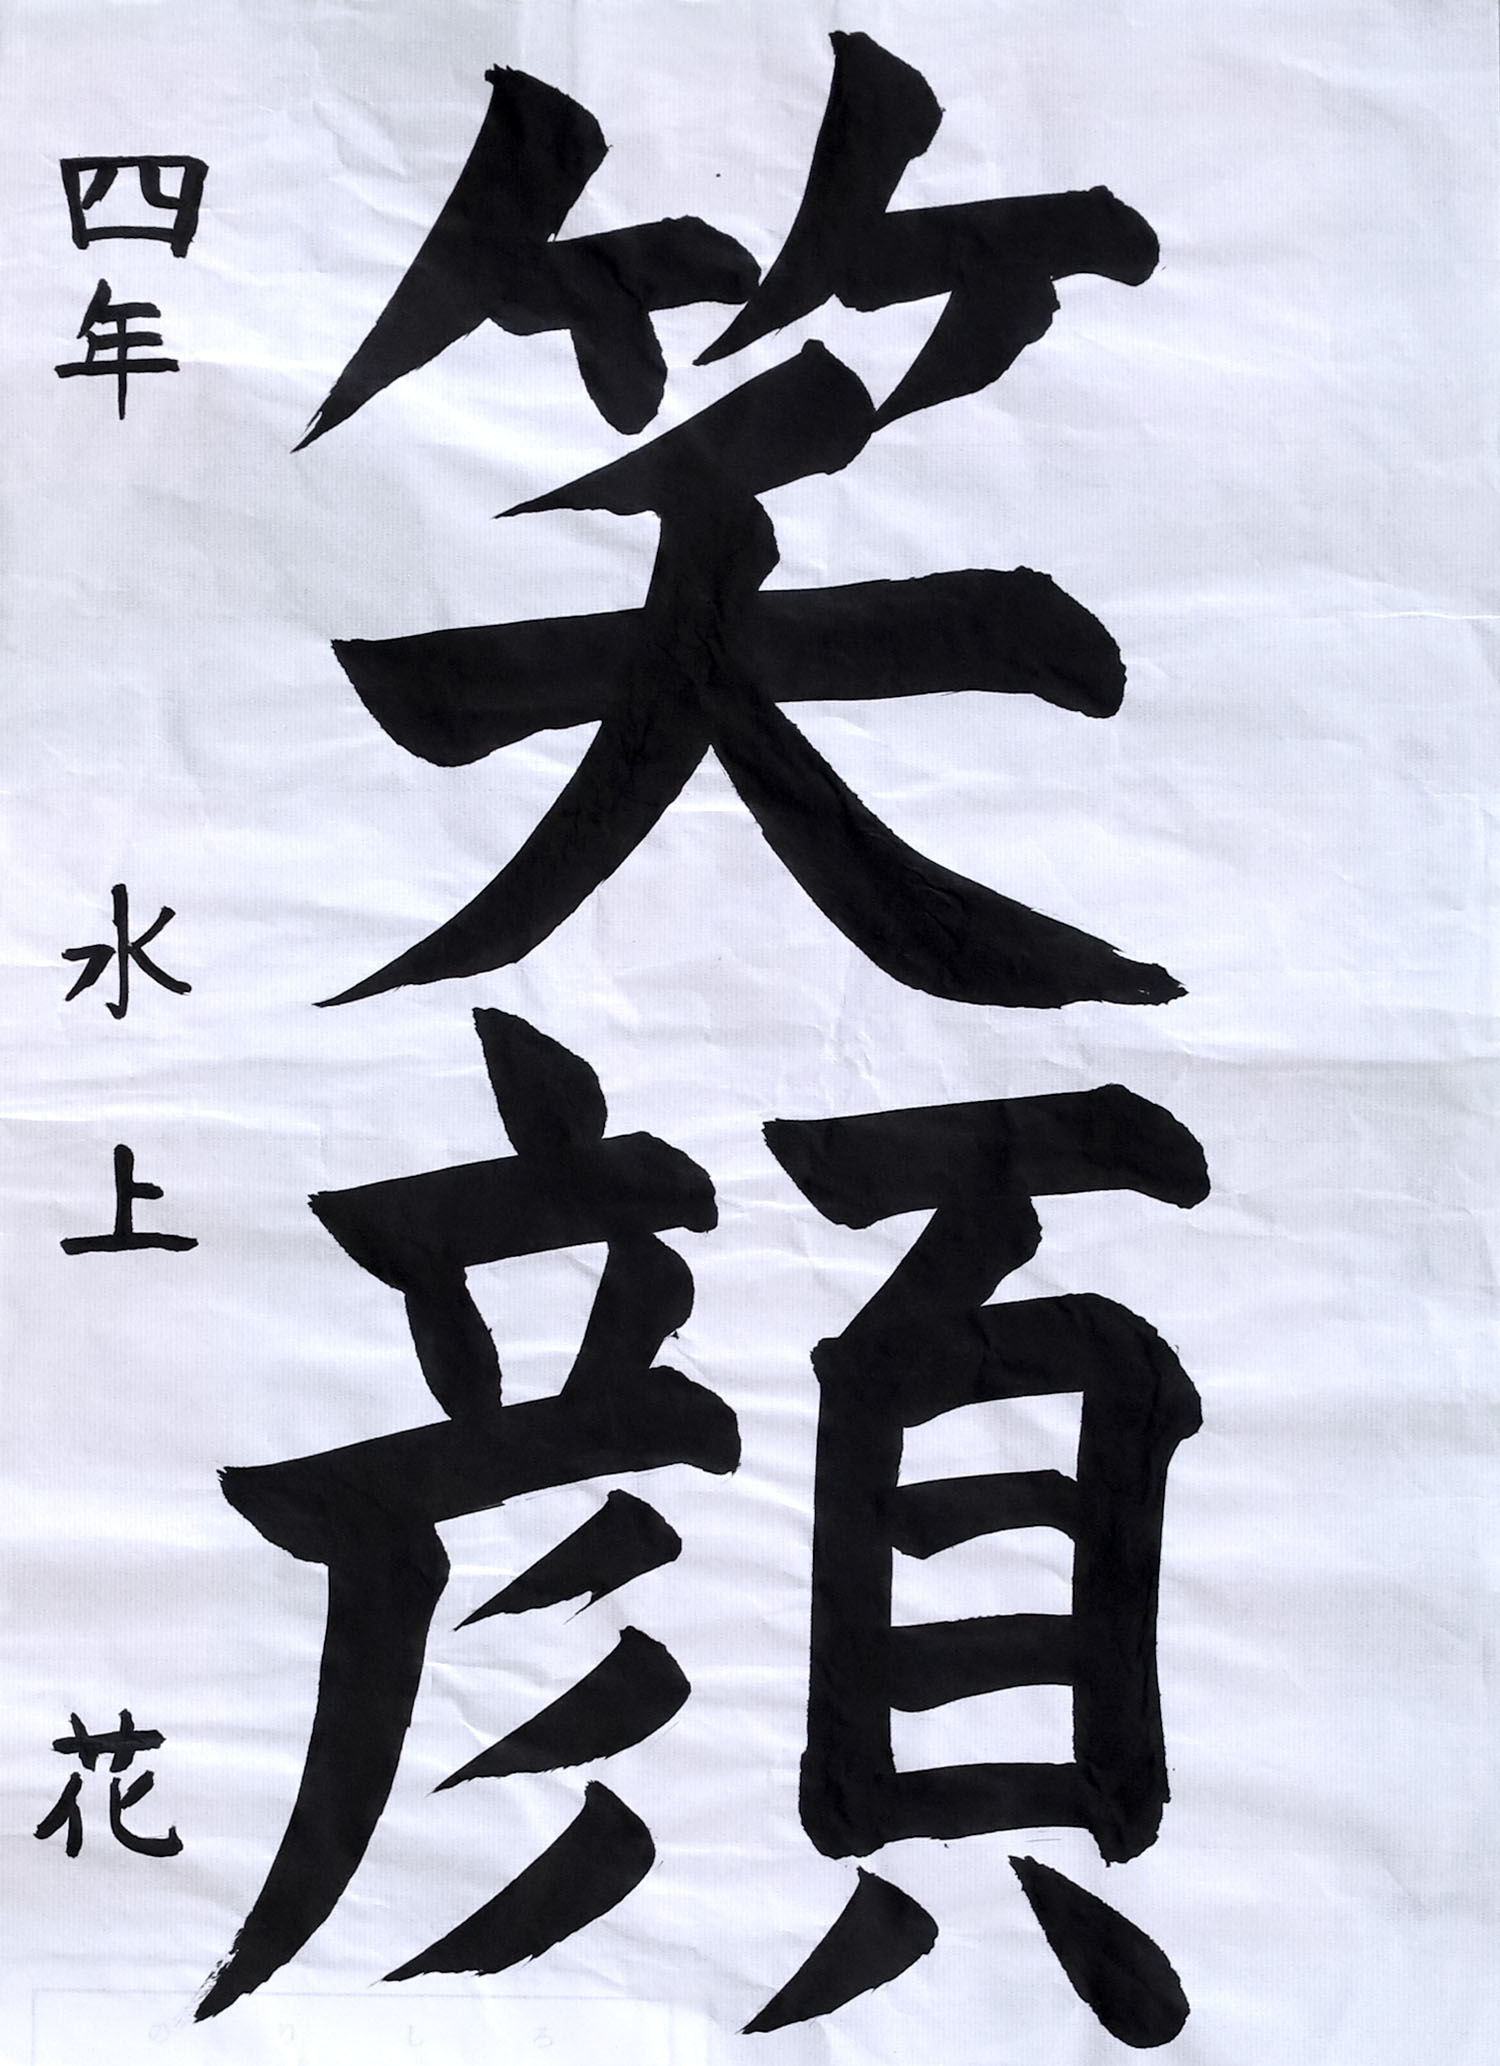 笑顔
四年 水上 花
のりしろ